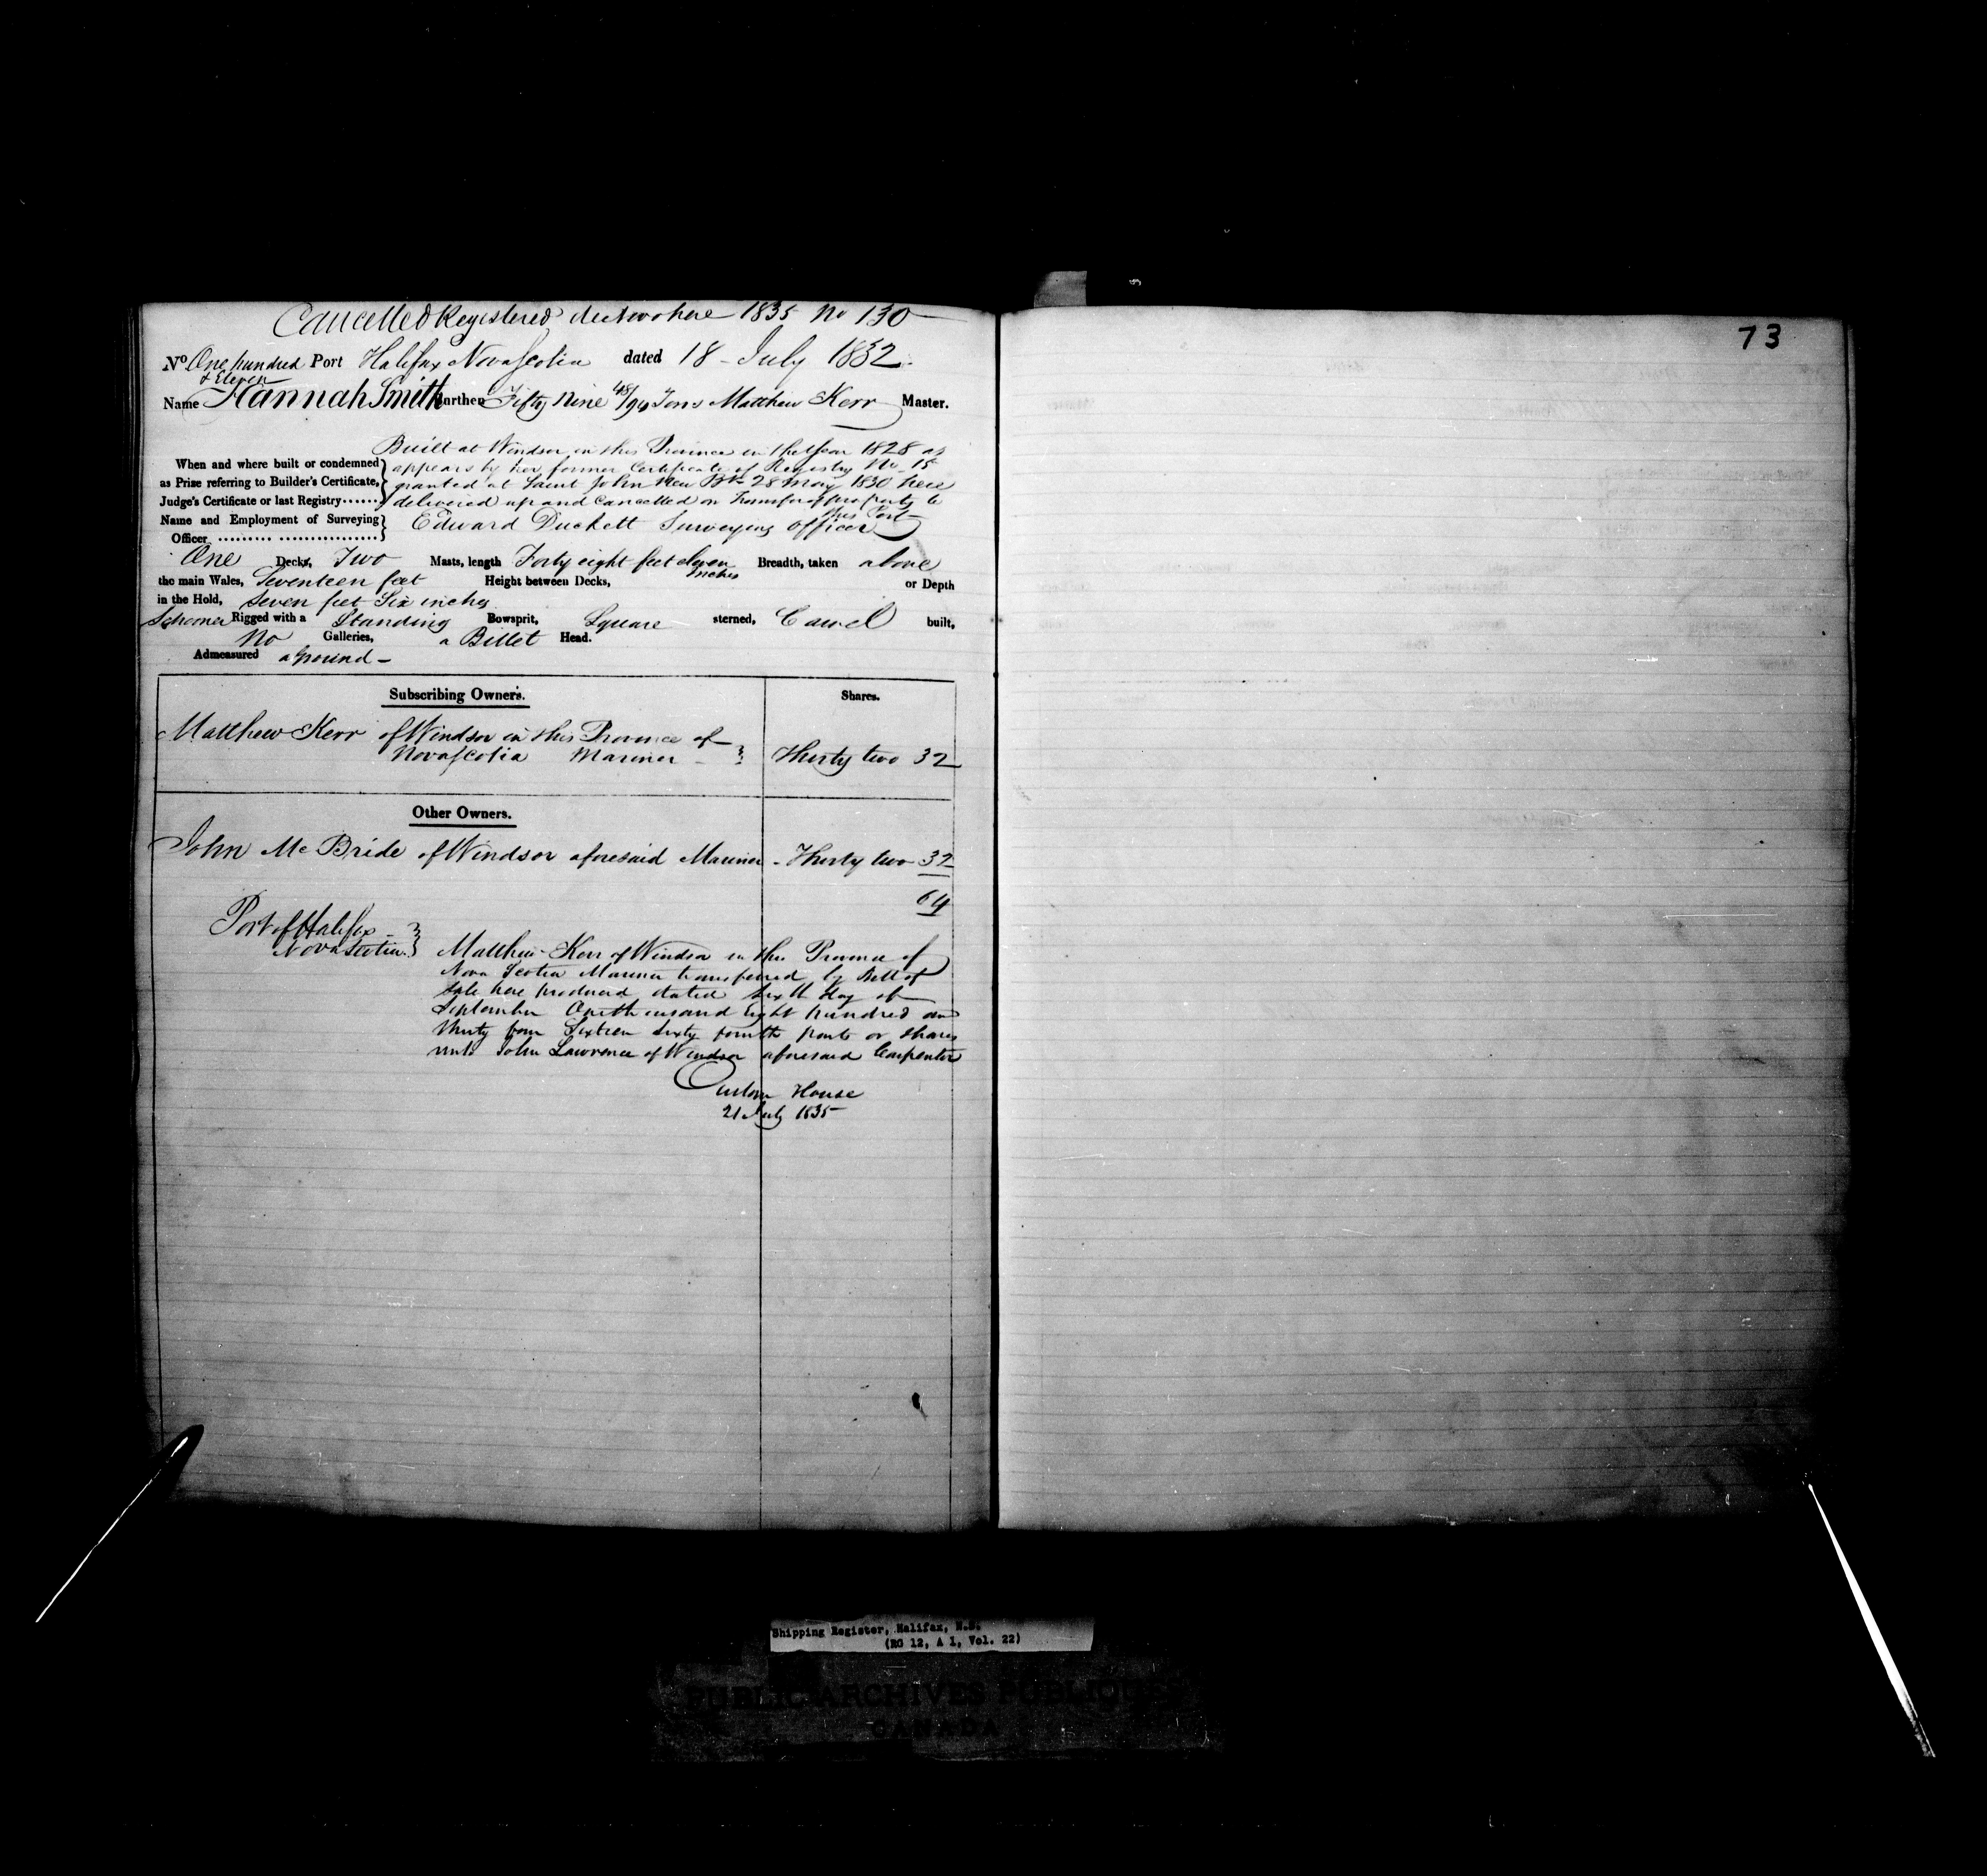 Cancelled Registered de Novo here 1835 No 130
73
No One hundred & Eleven Port Halifax Nova Scotia dated 18 July 1832
Name Hannah Smith Burthen Fifty Nine 48/94 Tons Matthew Kerr Master.
Built at Windsor in this Province in the Year 1828 as
When and where built or condemned appears by her former Certificate of Registry No. 15
as Prize referring to Builder's Certificate, granted at Saint John New Bk 28 May 1830 here
Judge's Certificate or last Registry...... delivered up and Cancelled on Transfer of property to
this Port
Name and Employment of Surveying Officer Edward Duckett Surveying officer
One Decks, Two Masts, length Forty eight feet eleven inches Breadth, taken above
the main Wales, Seventeen feet Height between Decks, or Depth
in the Hold, Seven feet Six inches
Schooner Rigged with a Standing Bowsprit, Square sterned, Carvel built,
No Galleries, a Billet Head.
Admeasured aground
Subscribing Owners. Shares.
Matthew Kerr of Windsor in this Province of
Nova Scotia Mariner Thirty two 32
Other Owners.
John Mc Bride of Windsor aforesaid Mariner - Thirty two 32
64
Port of Halifax
Nova Scotia
Matthew Kerr of Windsor in the Province of
Nova Scotia Mariner transferred by Bill of
Sale here produced dated Sixth day of
September One thousand Eight hundred and
thirty four Sixteen Sixty fourth parts or shares
unto John Lawrence of Windsor aforesaid Carpenter
Custom House
21 July 1835
Shipping Register, Halifax, N.S.
(RG 12, A 1, Vol. 22)
PUBLIC ARCHIVES PUBLIQUES
CANADA